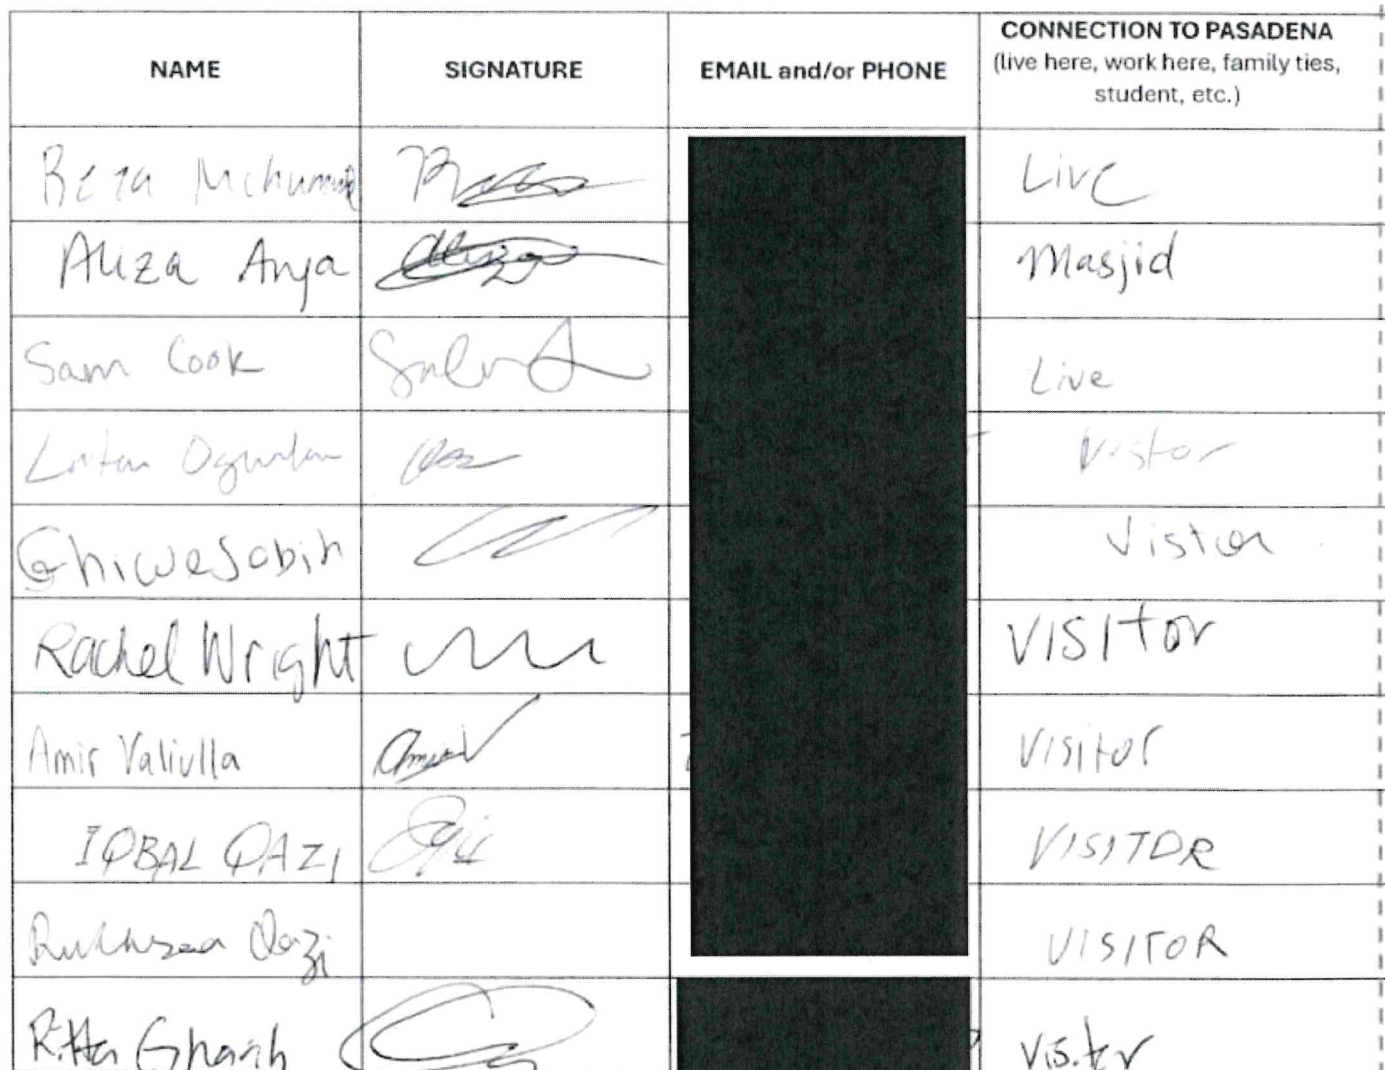 NAME SIGNATURE EMAIL and/or PHONE CONNECTION TO PASADENA
(live here, work here, family ties,
student, etc.)
Reza Live
Aliza Anja Aliza Masjid
Sam Cook Live
Visitor
Vistor
Rachel Wright VISITOR
Amir Valiulla Amir V VISITOR
IQBAL QAZI VISITOR
Qazi VISITOR
Ritta Ghosh Visitor